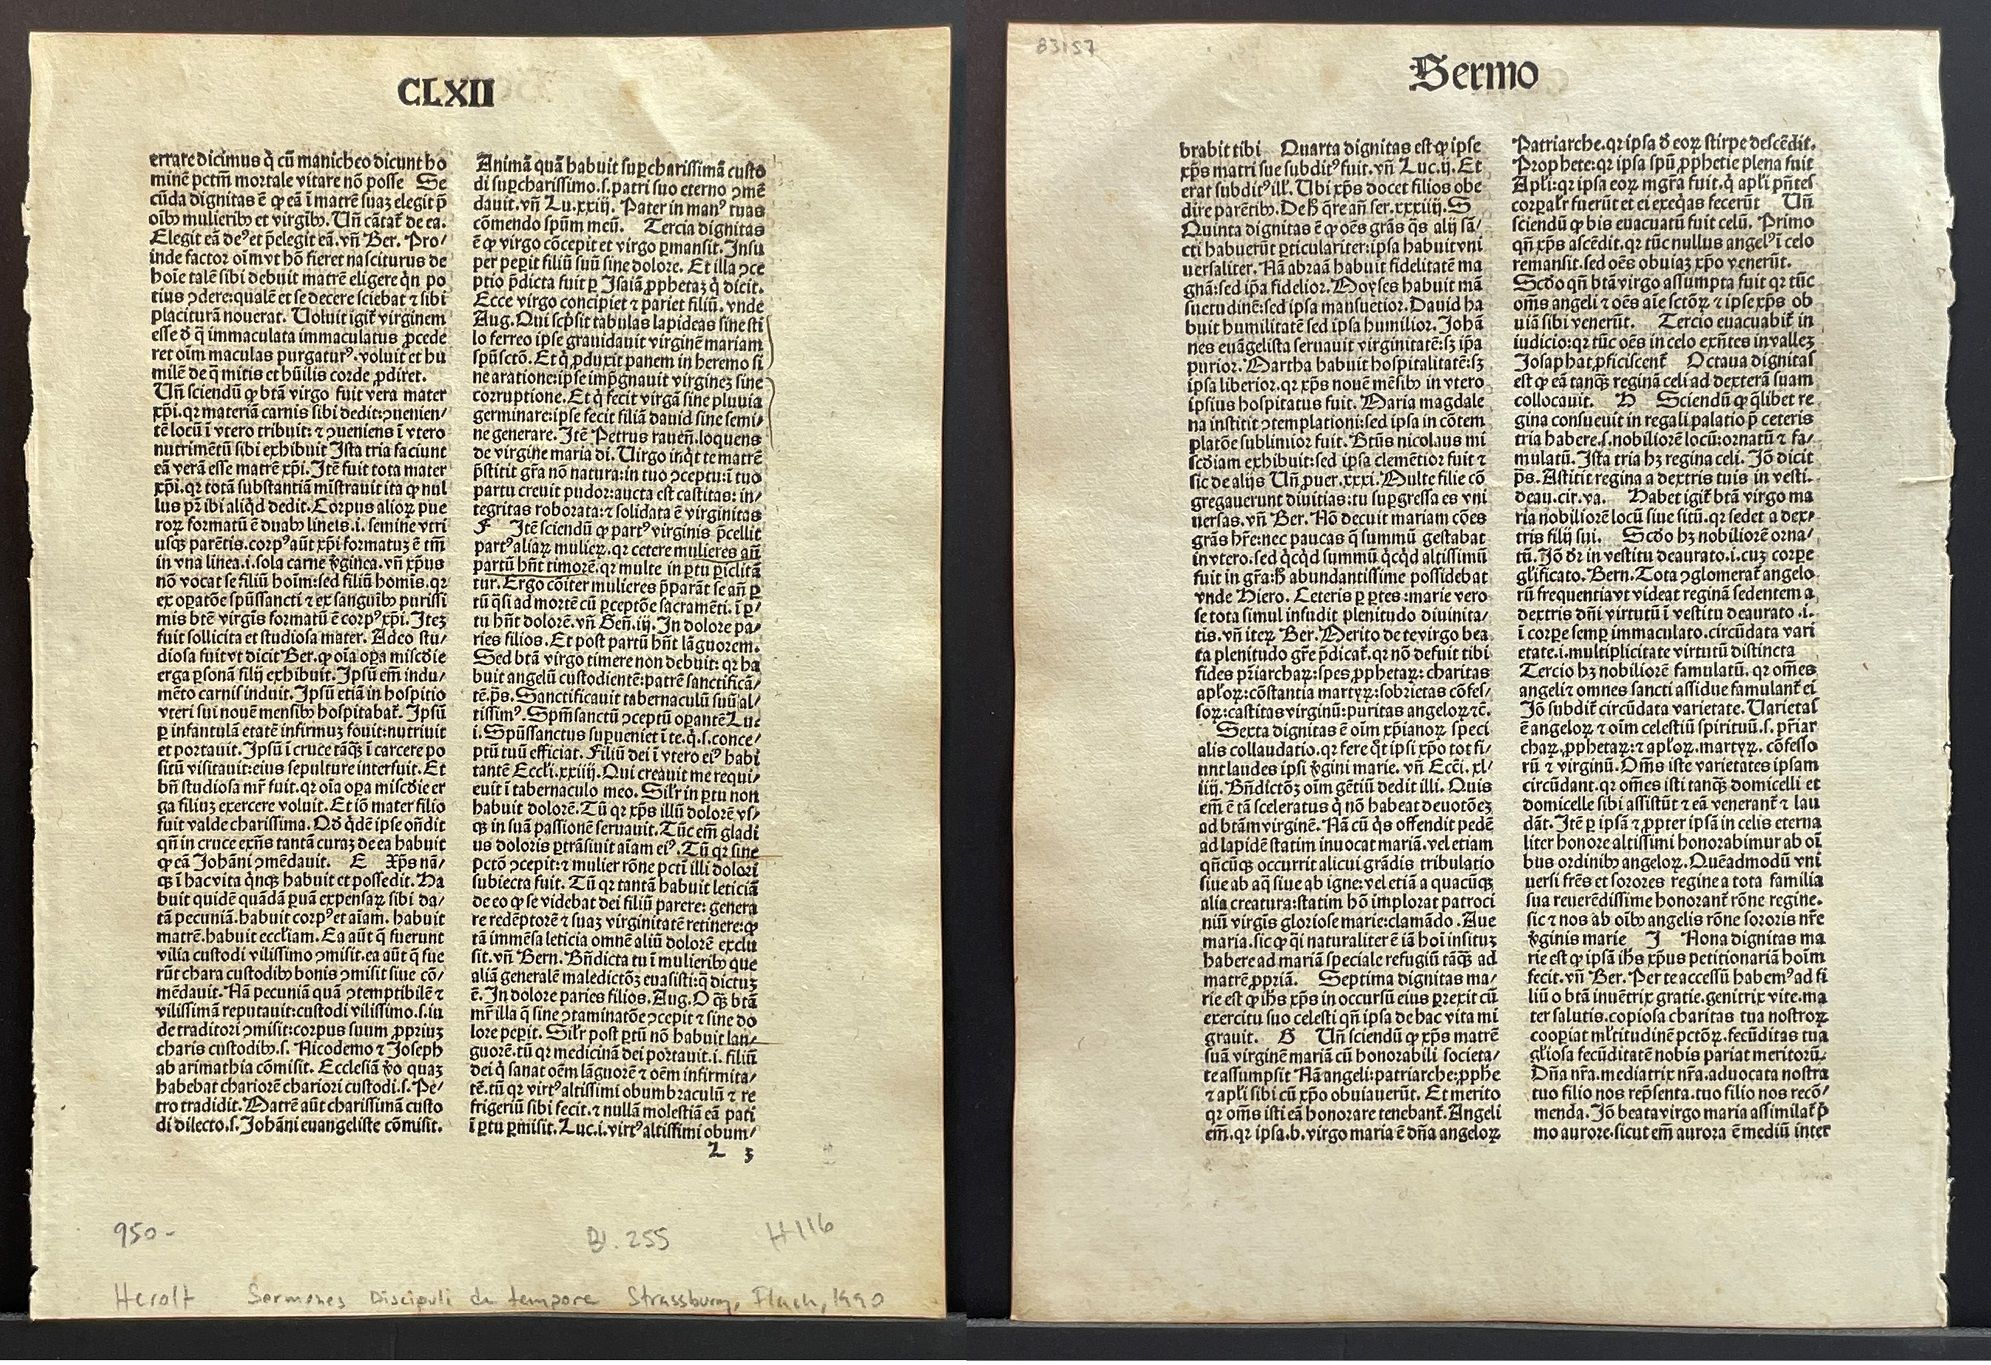 CLXII
errare dicimus q̇ cū manicheo dicunt ho
minē pctm̄ mortale vitare nō posse Se
cūda dignitas ē ꝙ eā ī matrē suaꝫ elegit p̄
oīb₉ mulierib₉ et virgīb₉. Uñ cātat̄ de ea.
Elegit eā deꝰ et p̄elegit eā. vñ Ber. Pro/
inde factor oīm vt hō fieret nasciturus de
hoīe talē sibi debuit matrē eligere q̇n po
tius ↄdere: qualē et se decere sciebat ⁊ sibi
placiturā nouerat. Uoluit igit̄ virginem
esse ď q̄ immaculata immaculatus ꝓcede
ret oīm maculas purgaturꝰ. voluit et hu
milē de q̄ mitis et hūilis corde ꝓdiret.
Uñ sciendū ꝙ btā virgo fuit vera mater
xp̄i. qr materiā carnis sibi dedit: ↄuenien/
tē locū ī vtero tribuit: ⁊ ↄueniens ī vtero
nutrimētū sibi exhibuit Ista tria faciunt
eā verā esse matrē xp̄i. Itē fuit tota mater
xp̄i. qr totā substantiā mīstrauit ita ꝙ nul
lus pr̄ ibi aliq̇d dedit. Corpus alioꝝ pue
roꝝ formatū ē duab₉ lineis. i. semine vtri
usqꝫ parētis. corpꝰ aūt xp̄i formatuꝫ ē tm̄
in vna linea. i. sola carne v̓ginea. vñ xp̄us
nō vocat se filiū hoīm: sed filiū homīs. qr
ex oꝑatōe spūssancti ⁊ ex sanguīb₉ purissi
mis btē virgīs formatū ē corpꝰ xp̄i. Iteꝫ
fuit sollicita et studiosa mater. Adeo stu/
diosa fuit vt dicit Ber. ꝙ oīa oꝑa mīscďie
erga ꝑsonā filij exhibuit. Ipsū em̄ indu/
mēto carnis induit. Ipsū etiā in hospitio
vteri sui nouē mensib₉ hospitabat̄. Ipsū
ꝑ infantulā etatē infirmuꝫ fouit: nutriuit
et portauit. Ipsū ī cruce tāqꝫ ī carcere po
sitū visitauit: eius sepulture interfuit. Et
bñ studiosa mr̄ fuit. qr oīa oꝑa mīscďie er
ga filiuꝫ exercere voluit. Et iō mater filio
fuit valde charissima. Qď q̇dē ipse oñdit
qñ in cruce exñs tantā curaꝫ de ea habuit
ꝙ eā Johāni ↄmēdauit. E Xp̄s nā/
qꝫ ī hac vita q̇nqꝫ habuit et possedit. Ha
buit quidē quādā ꝑuā expensaꝝ sibi da/
tā pecuniā. habuit corpꝰ et aīam. habuit
matrē. habuit eccl̄iam. Ea aūt q̄ fuerunt
vilia custodi vilissimo ↄmisit. ea aūt q̄ fue
rūt chara custodib₉ bonis ↄmisit siue cō/
mēdauit. Nā pecuniā quā ↄtemptibilē ⁊
vilissimā reputauit: custodi vilissimo. s. iu
de traditori ↄmisit: corpus suum ꝓpriuꝫ
charis custodib₉. s. Nicodemo ⁊ Joseph
ab arimathia cōmisit. Ecclesiā v̓o quaꝫ
habebat chariorē chariori custodi. s. Pe/
tro tradidit. Matrē aūt charissimā custo
di dilecto. s. Johāni euangeliste cōmisit.
Animā quā habuit suꝑcharissimā custo
di suꝑcharissimo. s. patri suo eterno ↄmē
dauit. vñ Lu. xxiij. Pater in manꝰ tuas
cōmendo spūm meū. Tercia dignitas
ē ꝙ virgo cōcepit et virgo ꝑmansit. Insu
per peꝑit filiū suū sine dolore. Et illa ↄce
ptio p̄dicta fuit ꝑ Isaiā ꝓphetaꝫ q̇ dicit.
Ecce virgo concipiet ⁊ pariet filiū. vnde
Aug. Qui scp̄sit tabulas lapideas sine sti
lo ferreo ipse grauidauit virginē mariam
spūsctō. Et q̇ ꝓduxit panem in heremo si
ne aratione: ipse imp̄gnauit virgineꝫ sine
corruptione. Et q̇ fecit virgā sine pluuia
germinare: ipse fecit filiā dauid sine semi/
ne generare. Itē Petrus rauen̄. loquens
de virgine maria di. Uirgo inq̇t te matrē
p̄stitit gr̄a nō natura: in tuo ↄceptu: ī tuo
partu creuit pudor: aucta est castitas: in/
tegritas roborata: ⁊ solidata ē virginitas
F Itē sciendū ꝙ partꝰ virginis p̄cellit
partꝰ aliaꝝ mulieꝝ. qr cetere mulieres añ
partū hn̄t timorē. qr multe in ꝑtu ꝑiclitā
tur. Ergo cōiter mulieres p̄parāt se añ ꝑ
tū q̇si ad mortē cū ꝑceptōe sacramēti. ī ꝑ/
tu hn̄t dolorē. vñ Gen̄. iij. In dolore pa/
ries filios. Et post partū hn̄t lāguorem.
Sed btā virgo timere non debuit: qr ha
buit angelū custodientē: patrē sanctificā/
tē. p̄s. Sanctificauit tabernaculū suū al/
tissimꝰ. Spm̄ sanctū ↄceptū oꝑantē Lu.
i. Spūssanctus suꝑueniet ī te. q. s. conce/
ptū tuū efficiat. Filiū dei ī vtero eiꝰ habi
tantē Eccl̄i. xxiiij. Qui creauit me requi/
euit ī tabernaculo meo. Sil̄r in ꝑtu non
habuit dolorē. Tū qr xp̄s illū dolorē vs/
qꝫ in suā passionē seruauit. Tūc em̄ gladi
us doloris ꝑtrāsiuit aīam eiꝰ. Tū qr sine
pctō ↄcepit: ⁊ mulier rōne pcti illi dolori
subiecta fuit. Tū qr tantā habuit leticiā
de eo ꝙ se videbat dei filiū parere: genera
re redēptorē ⁊ suaꝫ virginitatē retinere: ꝙ
tā immēsa leticia omnē aliū dolorē exclu
sit. vñ Bern. Bn̄dicta tu ī mulierib₉ que
aliā generalē maledictōꝫ euasisti: q̄ dictuꝫ
ē. In dolore paries filios. Aug. O qꝫ btā
mr̄ illa q̄ sine ↄtaminatōe ↄcepit ⁊ sine do
lore peꝑit. Sil̄r post ꝑtū nō habuit lan/
guorē. tū qr medicinā dei portauit. i. filiū
dei q̇ sanat oēm lāguorē ⁊ oēm infirmita/
tē. tū qr virtꝰ altissimi obumbraculū ⁊ re
frigeriū sibi fecit. ⁊ nullā molestiā eā pati
ī ꝑtu ꝑmisit. Luc. i. virtꝰ altissimi obum/
L 3
950-
BJ. 255
H116
Herolt Sermones Discipuli de tempore Strassburg, Flach, 1490
83157
Sermo
brabit tibi Quarta dignitas est ꝙ ipse
xp̄s matri sue subditꝰ fuit. vñ Luc. ij. Et
erat subditꝰ ill̓. Ubi xp̄s docet filios obe
dire parētib₉. De h̓ q̄re añ ser. xxxiiij. S
Quinta dignitas ē ꝙ oēs grās q̄s alij sā/
cti habuerūt ꝑticulariter: ipsa habuit vni
uersaliter. Nā abraā habuit fidelitatē ma
gnā: sed ip̄a fidelior. Moyses habuit mā
suetudinē: sed ipsa mansuetior. Dauid ha
buit humilitatē sed ipsa humilior. Johā
nes euāgelista seruauit virginitatē: sꝫ ip̄a
purior. Martha habuit hospitalitatē: sꝫ
ipsa liberior. qr xp̄s nouē mēsib₉ in vtero
ipsius hospitatus fuit. Maria magdale
na institit ↄtemplationi: sed ipsa in cōtem
platōe sublimior fuit. Btūs nicolaus mi
scďiam exhibuit: sed ipsa clemētior fuit ⁊
sic de alijs Uñ ꝓuer. xxxi. Multe filie cō
gregauerunt diuitias: tu suꝑgressa es vni
uersas. vñ Ber. Nō decuit mariam cōes
grās hr̄e: nec paucas q̄ summū gestabat
in vtero. sed q̇cqd summū q̇cqd altissimū
fuit in gr̄a: h̓ abundantissime possidebat
vnde Hiero. Ceteris ꝑ ꝑtes: marie vero
se tota simul infudit plenitudo diuinita/
tis. vñ iteꝝ Ber. Merito de te virgo bea
ta plenitudo gr̄e p̄dicat̄. qr nō defuit tibi
fides pr̄iarchaꝝ: spes ꝓphetaꝝ: charitas
apl̄oꝝ: cōstantia martyꝝ: sobrietas cōfes/
soꝝ: castitas virginū: puritas angeloꝝ ⁊c̄.
Sexta dignitas ē oīm xp̄ianoꝝ speci
alis collaudatio. qr fere q̇t ipsi xp̄o tot fi/
unt laudes ipsi v̓gini marie. vñ Ecci. xl/
iiij. Bn̄dictōꝫ oīm gētiū dedit illi. Quis
em̄ ē tā sceleratus q̇ nō habeat deuotōeꝫ
ad btām virginē. Nā cū q̇s offendit pedē
ad lapidē statim inuocat mariā. vel etiam
qñcūqꝫ occurrit alicui grādis tribulatio
siue ab aq̄ siue ab igne: vel etiā a quacūqꝫ
alia creatura: statim hō implorat patroci
niū virgīs gloriose marie: clamādo. Aue
maria. sic ꝙ q̇ naturaliter ē iā hoī insituꝫ
habere ad mariā speciale refugiū tāqꝫ ad
matrē ꝓpriā. Septima dignitas ma/
rie est ꝙ ih̄s xp̄s in occursū eius ꝑrexit cū
exercitu suo celesti qñ ipsa de hac vita mi
grauit. G Uñ sciendū ꝙ xp̄s matrē
suā virginē mariā cū honorabili societa/
te assumpsit Nā angeli: patriarche: ꝓphe
⁊ apl̄i sibi cū xp̄o obuiauerūt. Et merito
qr om̄s isti eā honorare tenebant̄. Angeli
em̄. qr ipsa. b. virgo maria ē dn̄a angeloꝝ
Patriarche. qr ipsa ď eoꝝ stirpe descēdit.
Prophete: qr ipsa spū ꝓphetie plena fuit
Apl̄i: qr ipsa eoꝝ mgr̄a fuit. q̇ apl̄i pn̄tes
corpal̄r fuerūt et ei exeq̄as fecerūt Uñ
sciendū ꝙ bis euacuatū fuit celū. Primo
qñ xp̄s ascēdit. qr tūc nullus angelꝰ ī celo
remansit. sed oēs obuiaꝫ xp̄o venerūt.
Scďo qñ btā virgo assumpta fuit qr tūc
om̄s angeli ⁊ oēs aīe sctōꝝ ⁊ ipse xp̄s ob
uiā sibi venerūt. Tercio euacuabit̄ in
iudicio: qr tūc oēs in celo exñtes in valleꝫ
Josaphat ꝓficiscent̄ Octaua dignitas
est ꝙ eā tanqꝫ reginā celi ad dexterā suam
collocauit. H Sciendū ꝙ q̄libet re
gina consueuit in regali palatio p̄ ceteris
tria habere. s. nobiliorē locū: ornatū ⁊ fa/
mulatū. Ista tria hꝫ regina celi. Iō dicit
p̄s. Astitit regina a dextris tuis in vesti.
deau. cir. va. Habet igit̄ btā virgo ma
ria nobiliorē locū siue sitū. qr sedet a dex/
tris filij sui. Scďo hꝫ nobiliorē orna/
tū. Iō dr̄ in vestitu deaurato. i. cuꝫ corꝑe
gl̓ificato. Bern. Tota ↄglomerat̄ angelo
rū frequentia vt videat reginā sedentem a
dextris dn̄i virtutū ī vestitu deaurato. i.
ī corꝑe semꝑ immaculato. circūdata vari
etate. i. multiplicitate virtutū distincta
Tercio hꝫ nobiliorē famulatū. qr om̄es
angeli ⁊ omnes sancti assidue famulant̄ ei
Iō subdit̄ circūdata varietate. Uarietas
ē angeloꝝ ⁊ oīm celestiū spirituū. s. pr̄iar
chaꝝ. ꝓphetaꝝ: ⁊ apl̄oꝝ. martyꝝ. cōfesso
rū ⁊ virginū. Om̄s iste varietates ipsam
circūdant. qr om̄es isti tanqꝫ domicelli et
domicelle sibi assistūt ⁊ eā venerant̄ ⁊ lau
dāt. Itē ꝑ ipsā ⁊ ꝓpter ipsā in celis eterna
liter honore altissimi honorabimur ab oī
bus ordinib₉ angeloꝝ. Quēadmodū vni
uersi frēs et sorores regine a tota familia
sua reuerēdissime honorant̄ rōne regine.
sic ⁊ nos ab oīb₉ angelis rōne sororis nr̄e
v̓ginis marie J Nona dignitas ma
rie est ꝙ ipsā ih̄s xp̄us petitionariā hoīm
fecit. vñ Ber. Per te accessū habemꝰ ad fi
liū o btā inuētrix gratie. genitrix vite. ma
ter salutis. copiosa charitas tua nostroꝝ
cooꝑiat ml̄titudinē pctōꝝ. fecūditas tua
gl̓iosa fecūditatē nobis pariat meritorū.
Dn̄a nr̄a. mediatrix nr̄a. aduocata nostra
tuo filio nos rep̄senta. tuo filio nos recō/
menda. Iō beata virgo maria assimilat̄ p̄
mo aurore. sicut em̄ aurora ē mediū inter